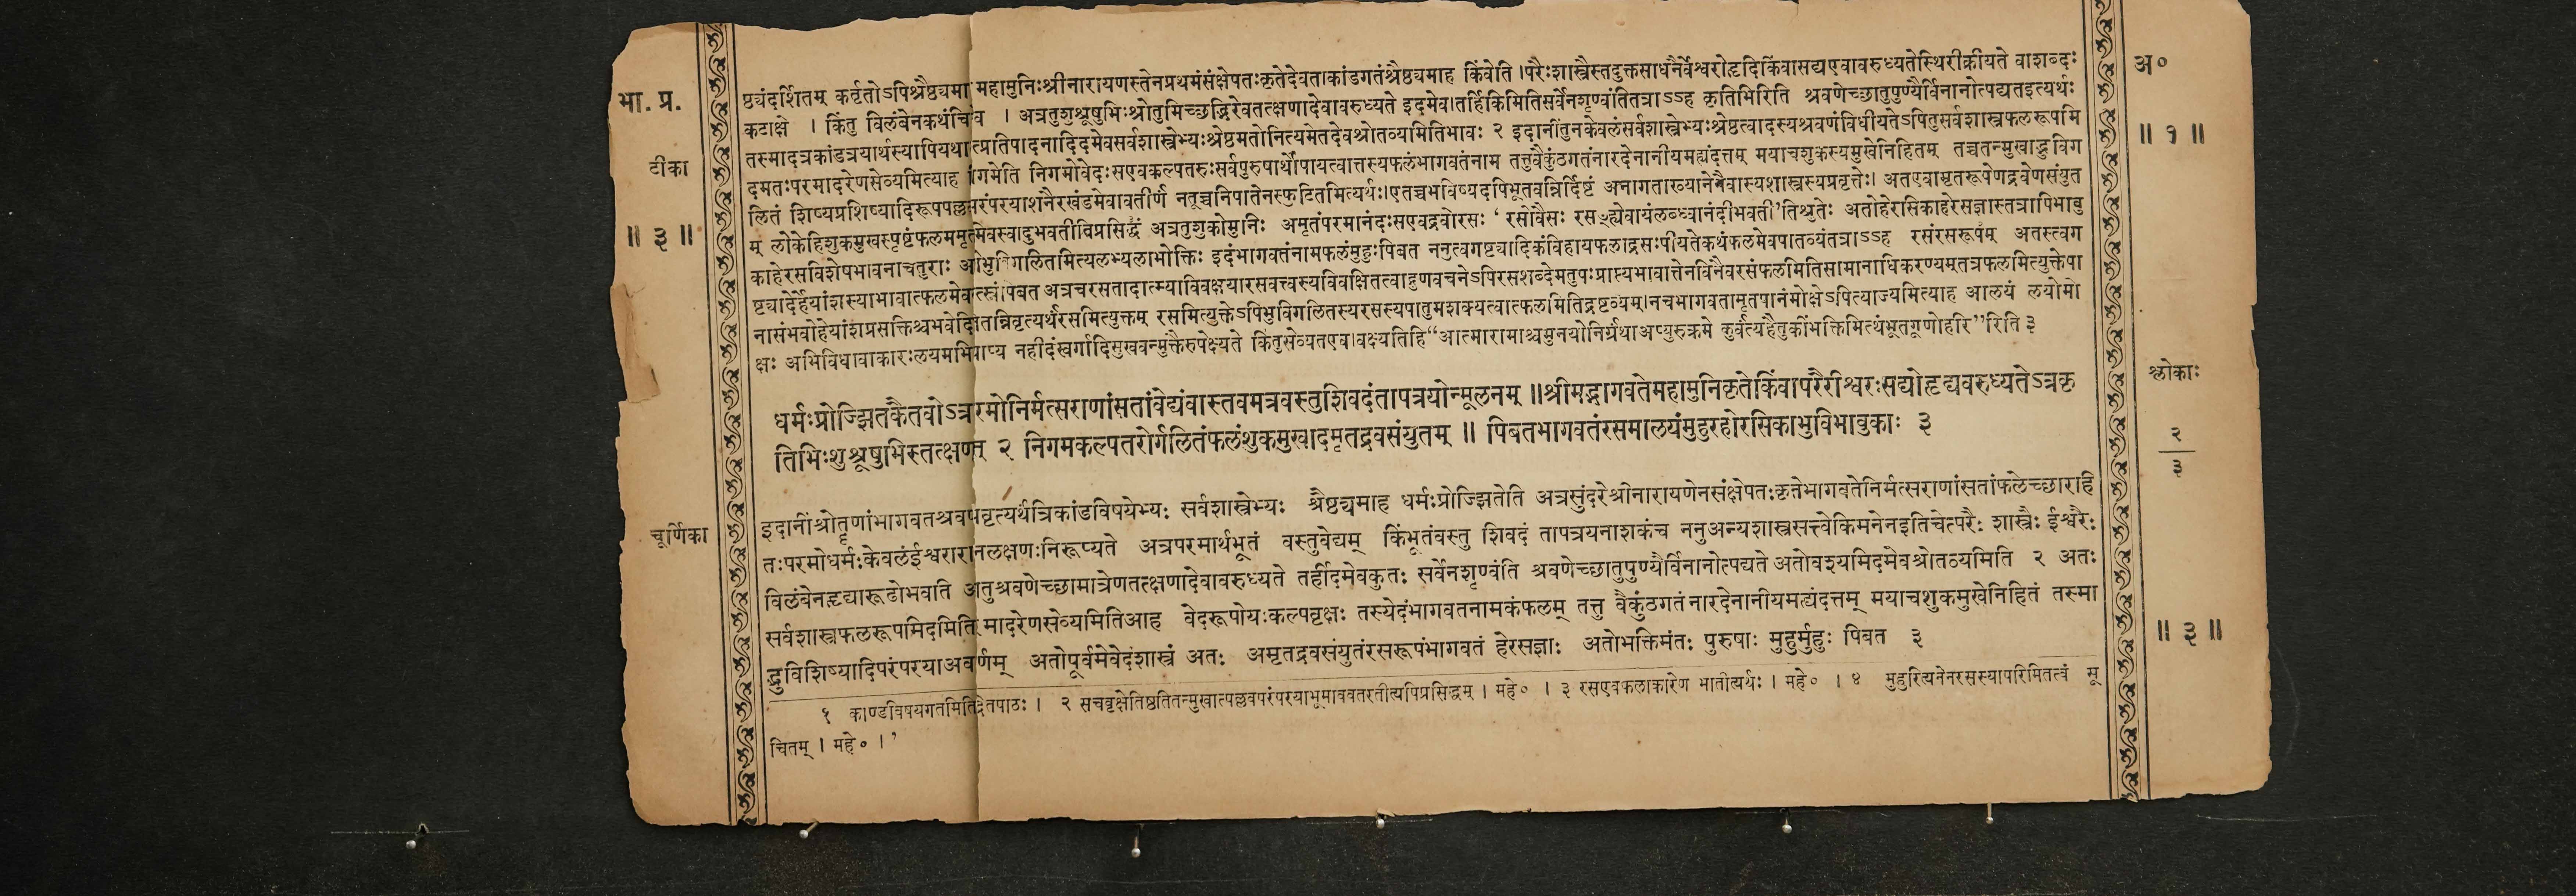 भा. प्र.
टीका
॥ ३ ॥
ष्ठ्यंदर्शितम् कर्तृतोऽपिश्रैष्ठ्यमा महामुनिःश्रीनारायणस्तेनप्रथमंसंक्षेपतःकृतेदेवताकांडगतंश्रैष्ठ्यमाह किंवेति ।परैःशास्त्रैस्तदुक्तसाधनैर्वेश्वरोहृदिकिंवासद्यएवावरुध्यतेस्थिरीक्रीयते वाशब्दः
कटाक्षे । किंतु विलंबेनकथंचि व । अत्रतुशुश्रूषुभिःश्रोतुमिच्छद्भिरेवतत्क्षणादेवावरुध्यते इदमेव।तर्हिकिमितिसर्वेनशृण्वंतितत्राऽऽह कृतिभिरिति श्रवणेच्छातुपुण्यैर्विनानोत्पद्यतइत्यर्थः
तस्मादत्रकांडत्रयार्थस्यापियथा त्प्रतिपादनादिदमेवसर्वशास्त्रेभ्यःश्रेष्ठमतोनित्यमेतदेवश्रोतव्यमितिभावः २ इदानींतुनकेवलंसर्वशास्त्रेभ्यःश्रेष्ठत्वादस्यश्रवणंविधीयतेऽपितुसर्वशास्त्रफलरूपमि
दमतःपरमादरेणसेव्यमित्याह गमेति निगमोवेदःसएवकल्पतरुःसर्वपुरुषार्थोपायत्वात्तस्यफलंभागवतंनाम तत्तुवैकुंठगतंनारदेनानीयमह्यंदत्तम् मयाचशुकस्यमुखेनिहितम् तच्चतन्मुखाद्भुविग
लितं शिष्यप्रशिष्यादिरूपपल्लवपरंपरयाशनैरखंडमेवावतीर्णं नतूच्चनिपातेनस्फुटितमित्यर्थः।एतच्चभविष्यदपिभूतवन्निर्दिष्टं अनागताख्यानेनैवास्यशास्त्रस्यप्रवृत्तेः। अतएवामृतरूपेणद्रवेणसंयुत
म् लोकेहिशुकमुखस्पृष्टंफलममृतमेवस्वादुभवतीतिप्रसिद्धं अत्रतुशुकोमुनिः अमृतंपरमानंदःसएवद्रवोरसः ‘ रसोवैसः रसꣳह्येवायंलब्ध्वानंदीभवती’तिश्रुतेः अतोहेरसिकाहेरसज्ञास्तत्रापिभावु
काहेरसविशेषभावनाचतुराः अहोभुविगलितमित्यलभ्यलाभोक्तिः इदंभागवतंनामफलंमुहुःपिबत ननुत्वगष्ट्यादिकंविहायफलाद्रसःपीयतेकथंफलमेवपातव्यंतत्राऽऽह रसंरसरूपम् अतस्त्वग
ष्ट्यादेर्हेयांशस्याभावात्फलमेवकृत्स्नंपिबत अत्रचरसतादात्म्याविवक्षयारसवत्त्वस्यविवक्षितत्वाद्गुणवचनेऽपिरसशब्देमतुपःप्राप्त्यभावात्तेनविनैवरसंफलमितिसामानाधिकरण्यम्तत्रफलमित्युक्तेपा
नासंभवोहेयांशप्रसक्तिश्चभवेदितितन्निवृत्यर्थंरसमित्युक्तम् रसमित्युक्तेऽपिभुविगलितस्यरसस्यपातुमशक्यत्वात्फलमितिद्रष्टव्यम्।नचभागवतामृतपानंमोक्षेऽपित्याज्यमित्याह आलयं लयोमो
क्षः अभिविधावाकारःलयमभिव्याप्य नहीदंस्वर्गादिसुखवन्मुक्तैरुपेक्ष्यते किंतुसेव्यतएव।वक्ष्यतिहि“आत्मारामाश्चमुनयोनिर्ग्रंथाअप्युरुक्रमे कुर्वंत्यहैतुकींभक्तिमित्थंभूतगूणोहरि”रिति ३
धर्मःप्रोज्झितकैतवोऽत्ररमोनिर्मत्सराणांसतांवेद्यंवास्तवमत्रवस्तुशिवदंतापत्रयोन्मूलनम् ॥श्रीमद्भागवतेमहामुनिकृतेकिंवापरैरीश्वरःसद्योहृद्यवरुध्यतेऽत्रकृ
तिभिःशुश्रूषुभिस्तत्क्षणात् २ निगमकल्पतरोर्गलितंफलंशुकमुखादमृतद्रवसंयुतम् ॥ पिबतभागवतंरसमालयंमुहुरहोरसिकाभुविभावुकाः ३
चूर्णिका
इदानींश्रोतॄणांभागवतश्रवणप्रवृत्यर्थंत्रिकांडविषयेभ्यः सर्वशास्त्रेभ्यः श्रैष्ठ्यमाह धर्मःप्रोज्झितेति अत्रसुंदरेश्रीनारायणेनसंक्षेपतःकृतेभागवतेनिर्मत्सराणांसतांफलेच्छाराहि
तःपरमोधर्मःकेवलंईश्वरारानलक्षणःनिरूप्यते अत्रपरमार्थभूतं वस्तुवेद्यम् किंभूतंवस्तु शिवदं तापत्रयनाशकंच ननुअन्यशास्त्रसत्त्वेकिमनेनइतिचेत्परैः शास्त्रैः ईश्वरैः
विलंबेनहृद्यारूढोभवति अतुश्रवणेच्छामात्रेणतत्क्षणादेवावरुध्यते तर्हीदमेवकुतः सर्वेनशृण्वंति श्रवणेच्छातुपुण्यैर्विनानोत्पद्यते अतोवश्यमिदमेवश्रोतव्यमिति २ अतः
सर्वशास्त्रफलरूपमिदमिति मादरेणसेव्यमितिआह वेदरूपोयःकल्पवृक्षः तस्येदंभागवतनामकंफलम् तत्तु वैकुंठगतं नारदेनानीयमत्यंदत्तम् मयाचशुकमुखेनिहितं तस्मा
द्भुविशिष्यादिपरंपरयाअवर्णम् अतोपूर्वमेवेदंशास्त्रं अतः अमृतद्रवसंयुतंरसरूपंभागवतं हेरसज्ञाः अतोभक्तिमंतः पुरुषाः मुहुर्मुहुः पिबत ३
१ काण्डविषयगतमितिद्वेतपाठः । २ सचवृक्षेतिष्ठतितन्मुखात्पल्लवपरंपरयाभूमाववतरतीत्यपिप्रसिद्धम् । महे० । ३ रसएवफलाकारेण भातीत्यर्थः । महे० । ४ मुहुरित्यनेनरसस्यापरिमितत्वं सू
चितम् । महे० ।’
अ०
॥ १ ॥
श्लोकाः
२
३
॥ ३ ॥